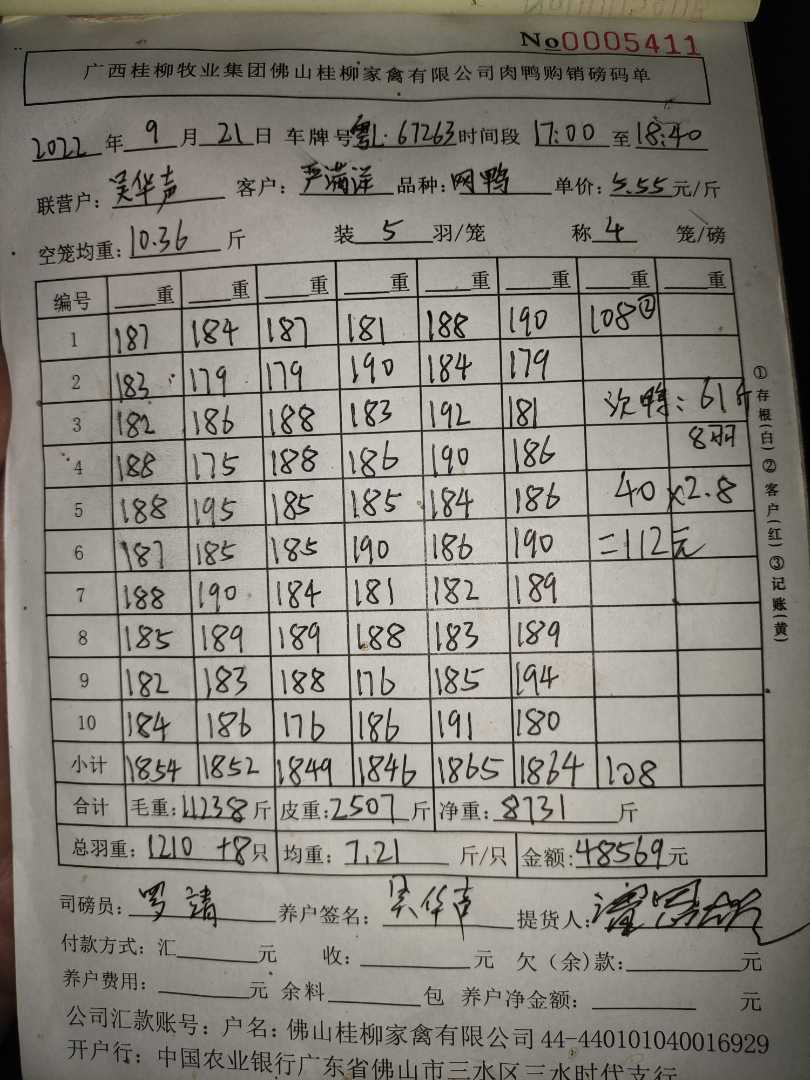 No0005411
广西桂柳牧业集团佛山桂柳家禽有限公司肉鸭购销磅码单
2022年9月21日 车牌号粤L·67263时间段17:00至18:40
联营户:吴华声 客户:严满洋 品种:网鸭 单价:5.55元/斤
空笼均重:10.36斤 装5羽/笼 称4笼/磅
编号 重 重 重 重 重 重 重 重
1 187 184 187 181 188 190 108②
2 183 179 179 190 184 179
3 182 186 188 183 192 181 次鸭:61斤
4 188 175 188 186 190 186 8羽
5 188 195 185 185 184 186 40×2.8
6 187 185 185 190 186 190 =112元
7 188 190 184 181 182 189
8 185 189 189 188 183 189
9 182 183 188 176 185 194
10 184 186 176 186 191 180
小计 1854 1852 1849 1846 1865 1864 108
合计 毛重:11238斤 皮重:2507斤 净重:8731斤
总羽重:1210+8只 均重:7.21斤/只 金额:48569元
司磅员:罗靖 养户签名:吴华声 提货人:
付款方式:汇 元 收: 元 欠(余)款: 元
养户费用: 元 余料 包 养户净金额: 元
公司汇款账号:户名:佛山桂柳家禽有限公司44-440101040016929
开户行:中国农业银行广东省佛山市三水区三水时代支行
①存根(白)②客户(红)③记账(黄)